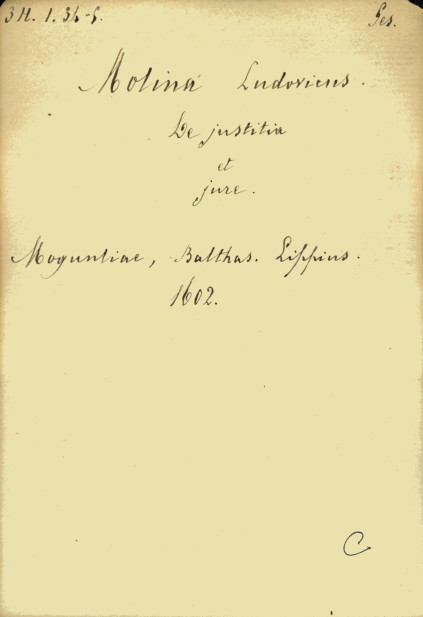 3 H. 1. 34-5. Jes.
Molina Ludovicus.
De justitia
et
jure.
Moguntiae, Balthas. Lippius.
1602.
C